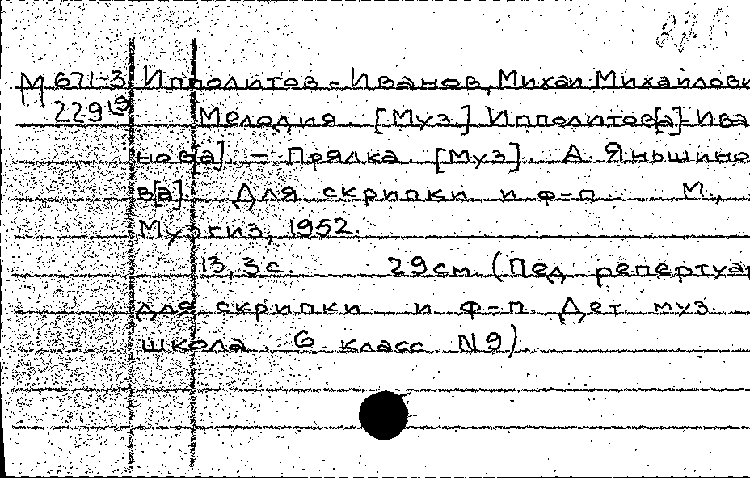 М 671-3 Ипполитов-Иванов, Михаил Михайлови
22919 Мелодия. [Муз.] Ипполитов[а]-Ива
нов[а]. — Прялка [Муз]. А. Яньшино
в[а]. Для скрипки и ф-п. М.,
Музгиз, 1952.
13, 3 с. 29см (Пед. репертуар
для скрипки и ф-п Дет муз
школа. 6 класс N9).